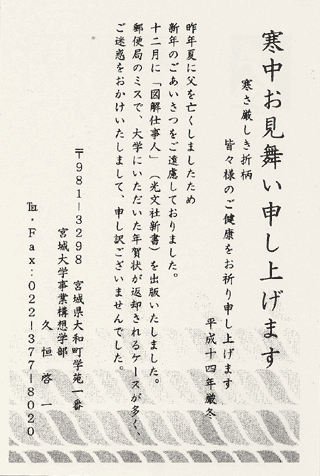 寒中お見舞い申し上げます
寒さ厳しき折柄
皆々様のご健康をお祈り申し上げます
平成十四年厳冬
昨年夏に父を亡くしましたため
新年のごあいさつをご遠慮しておりました。
十二月に「図解仕事人」（光文社新書）を出版いたしました。
郵便局のミスで、大学にいただいた年賀状が返却されるケースが多く、
ご迷惑をおかけいたしまして、申し訳ございませんでした。
〒981－3298　宮城県大和町学苑一番
宮城大学事業構想学部
久恒啓一
℡・Fax：022－377－8020